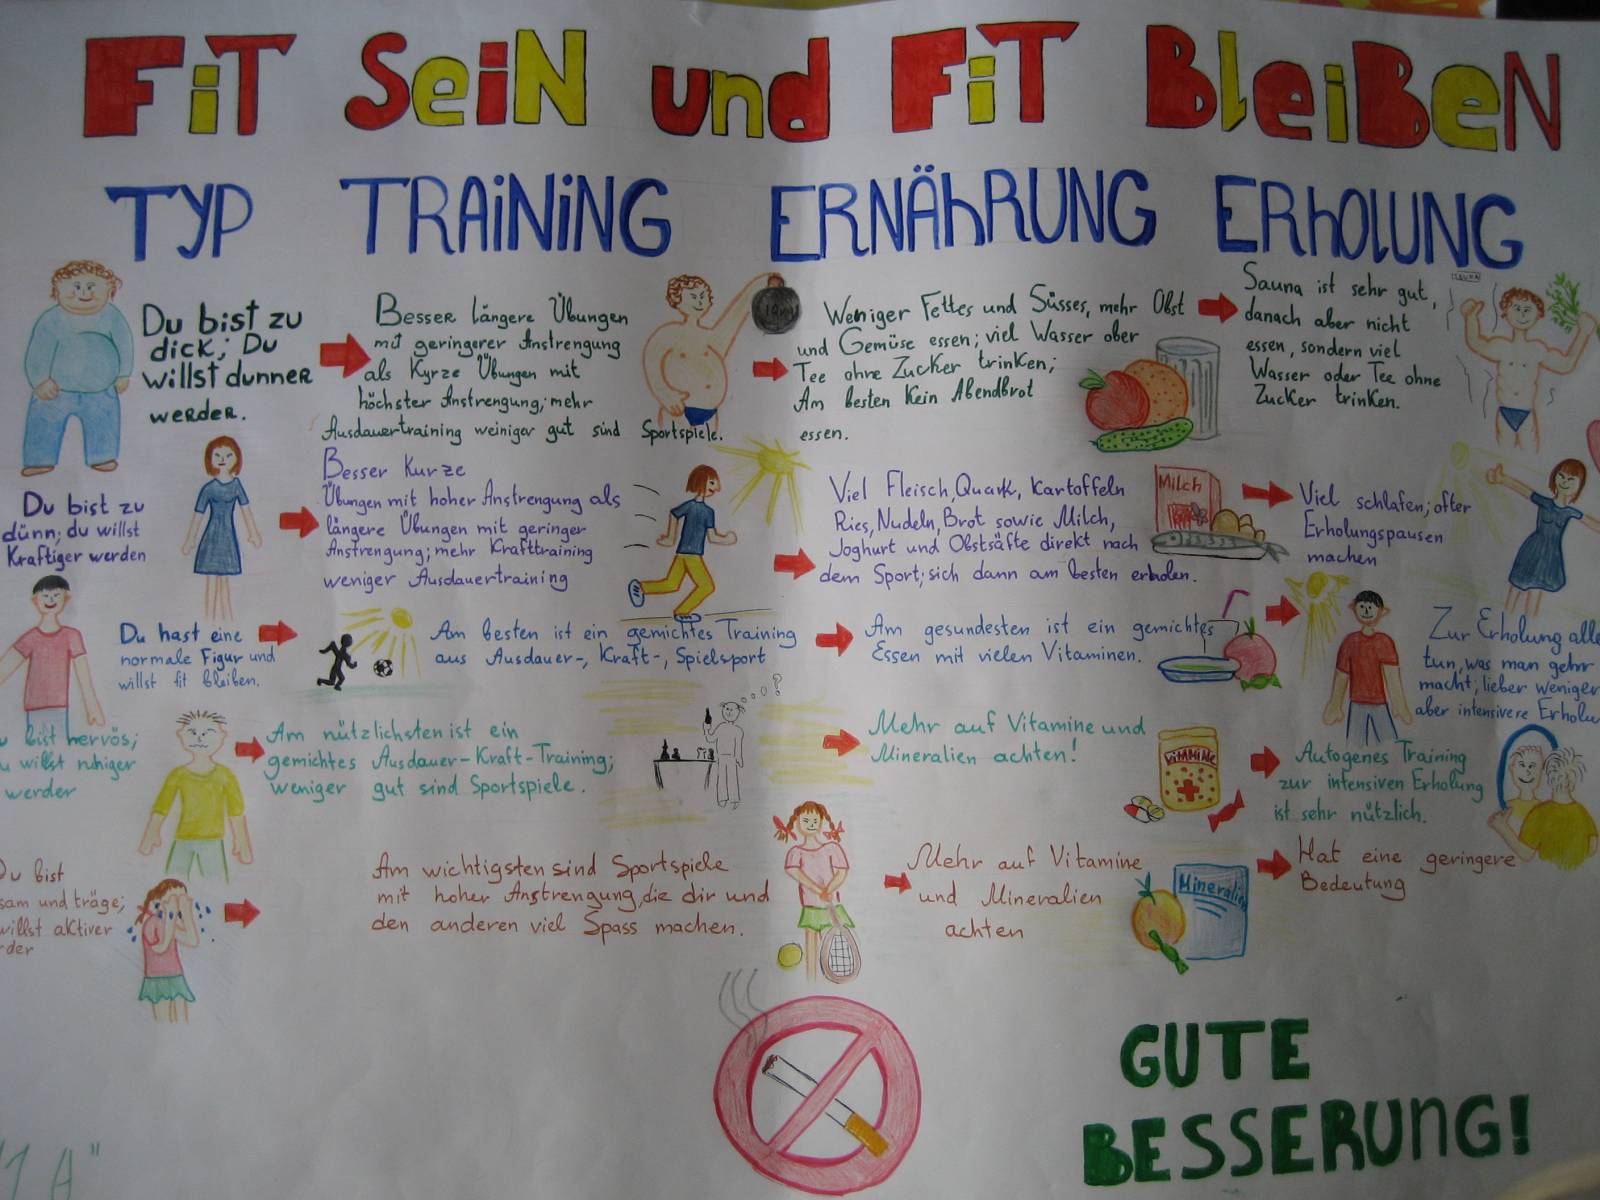 FiT SeiN und FiT BleiBeN
TYP TRAiNiNG ERNÄhRUNG ERhOLUNG
Du bist zu
dick; Du
willst dunner
werder.
Besser längere Übungen
mit geringerer Anstrengung
als Kyrze Übungen mit
höchster Anstrengung; mehr
Ausdauertraining weiniger gut sind Sportspiele.
Weniger Fettes und Süsses, mehr Obst
und Gemüse essen; viel Wasser ober
Tee ohne Zucker trinken;
Am besten Kein Abendbrot
essen.
Sauna ist sehr gut,
danach aber nicht
essen, sondern viel
Wasser oder Tee ohne
Zucker trinken.
Du bist zu
dünn; du willst
Kraftiger werden
Besser Kurze
Übungen mit hoher Anstrengung als
längere Übungen mit geringer
Anstrengung; mehr Krafttraining
weniger Ausdauertraining
Viel Fleisch, Quark, Kartoffeln
Ries, Nudeln, Brot sowie Milch,
Joghurt und Obstsäfte direkt nach
dem Sport; sich dann am besten erholen.
Milch
Viel schlafen; ofter
Erholungspausen
machen
Du hast eine
normale Figur und
willst fit bleiben.
Am besten ist ein gemichtes Training
aus Ausdauer-, Kraft-, Spielsport
Am gesundesten ist ein gemichtes
Essen mit vielen Vitaminen.
Zur Erholung alle
tun, was man gehr
macht; lieber weniger
aber intensivere Erholu
u bist nervös;
u willst ruhiger
werder
Am nützlichsten ist ein
gemichtes Ausdauer-Kraft-Training;
weniger gut sind Sportspiele.
?
Mehr auf Vitamine und
Mineralien achten!
ViTAMiNe
Autogenes Training
zur intensiven Erholung
ist sehr nützlich.
Du bist
sam und träge;
willst aktiver
rder
Am wichtigsten sind Sportspiele
mit hoher Anstrengung, die dir und
den anderen viel Spass machen.
Mehr auf Vitamine
und Mineralien
achten
Mineralien
Hat eine geringere
Bedeutung
GUTE
BESSERUNG!
"1A"